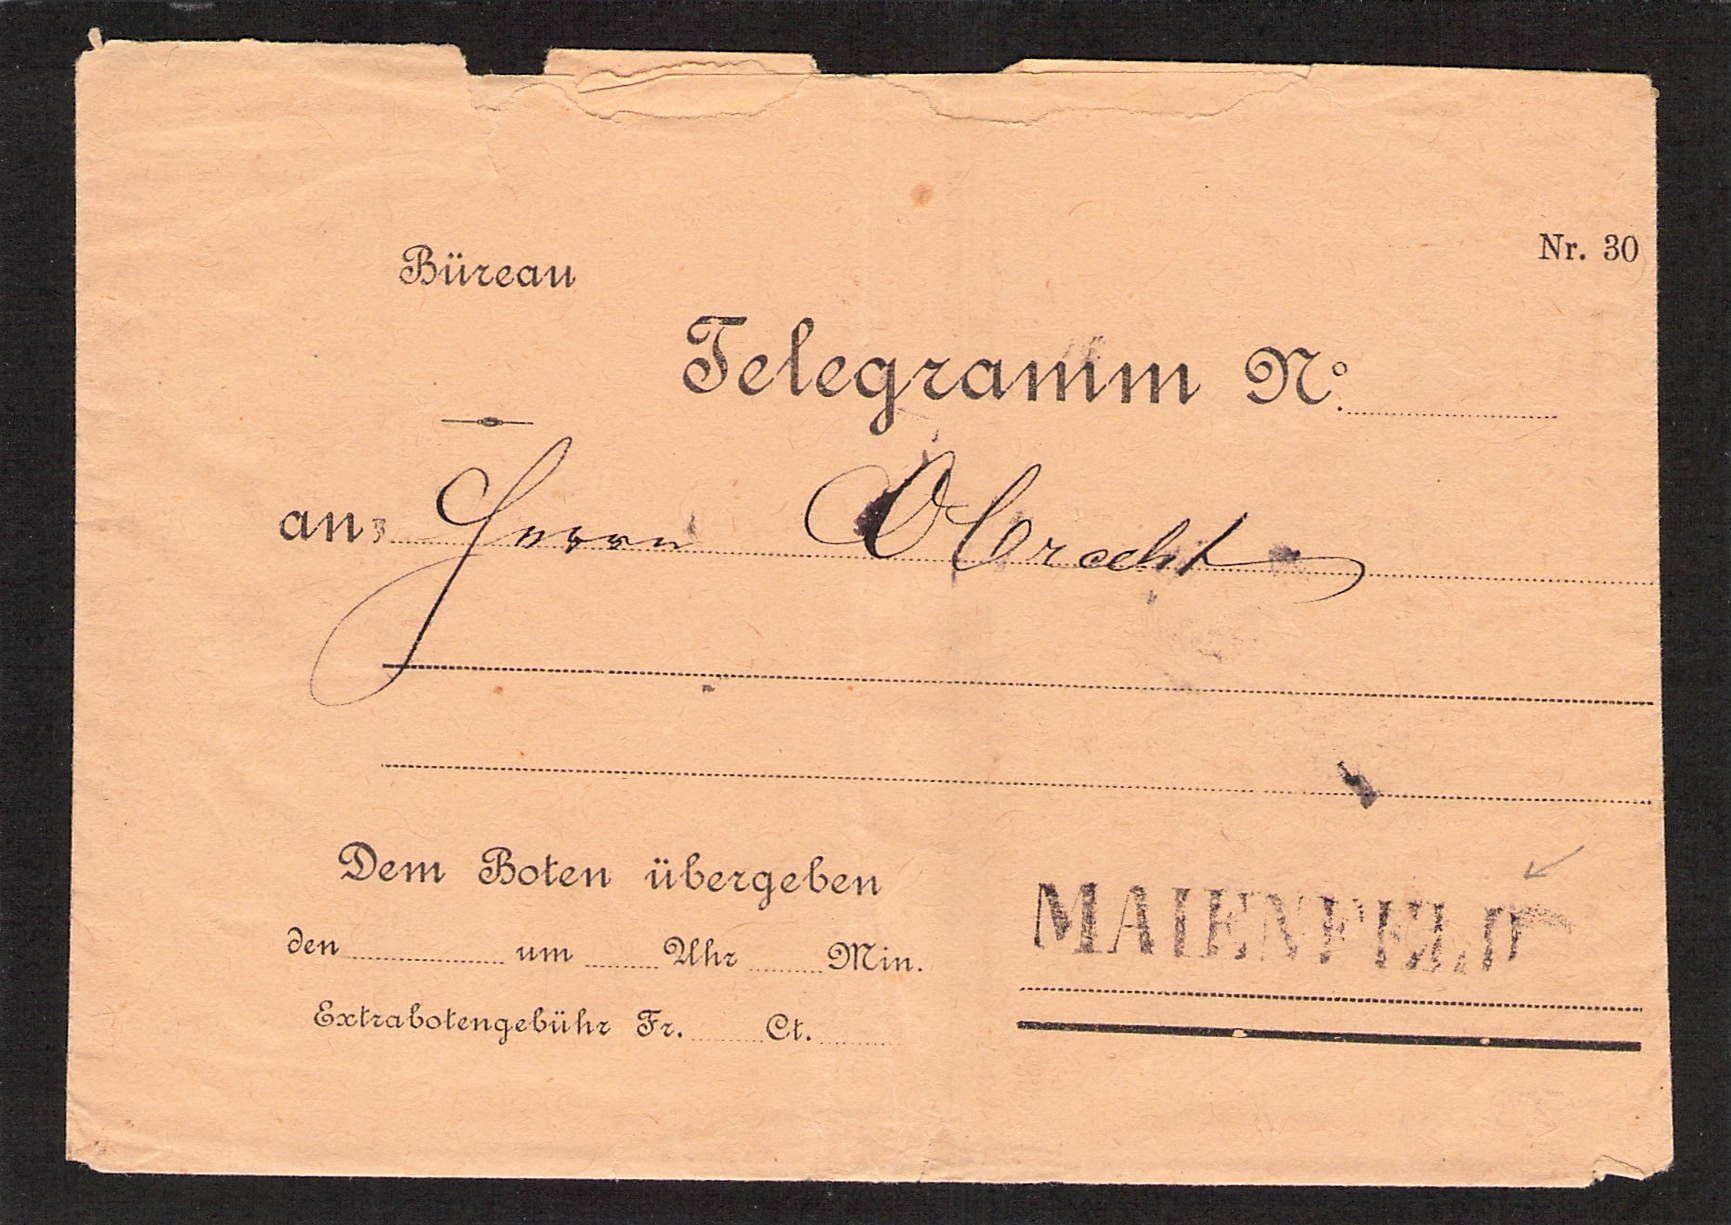 Nr. 30
Büreau
Telegramm No.
an: Herrn Obrecht
Dem Boten übergeben
den um Uhr Min.
MAIENFELD
Extrabotengebühr Fr. Ct.